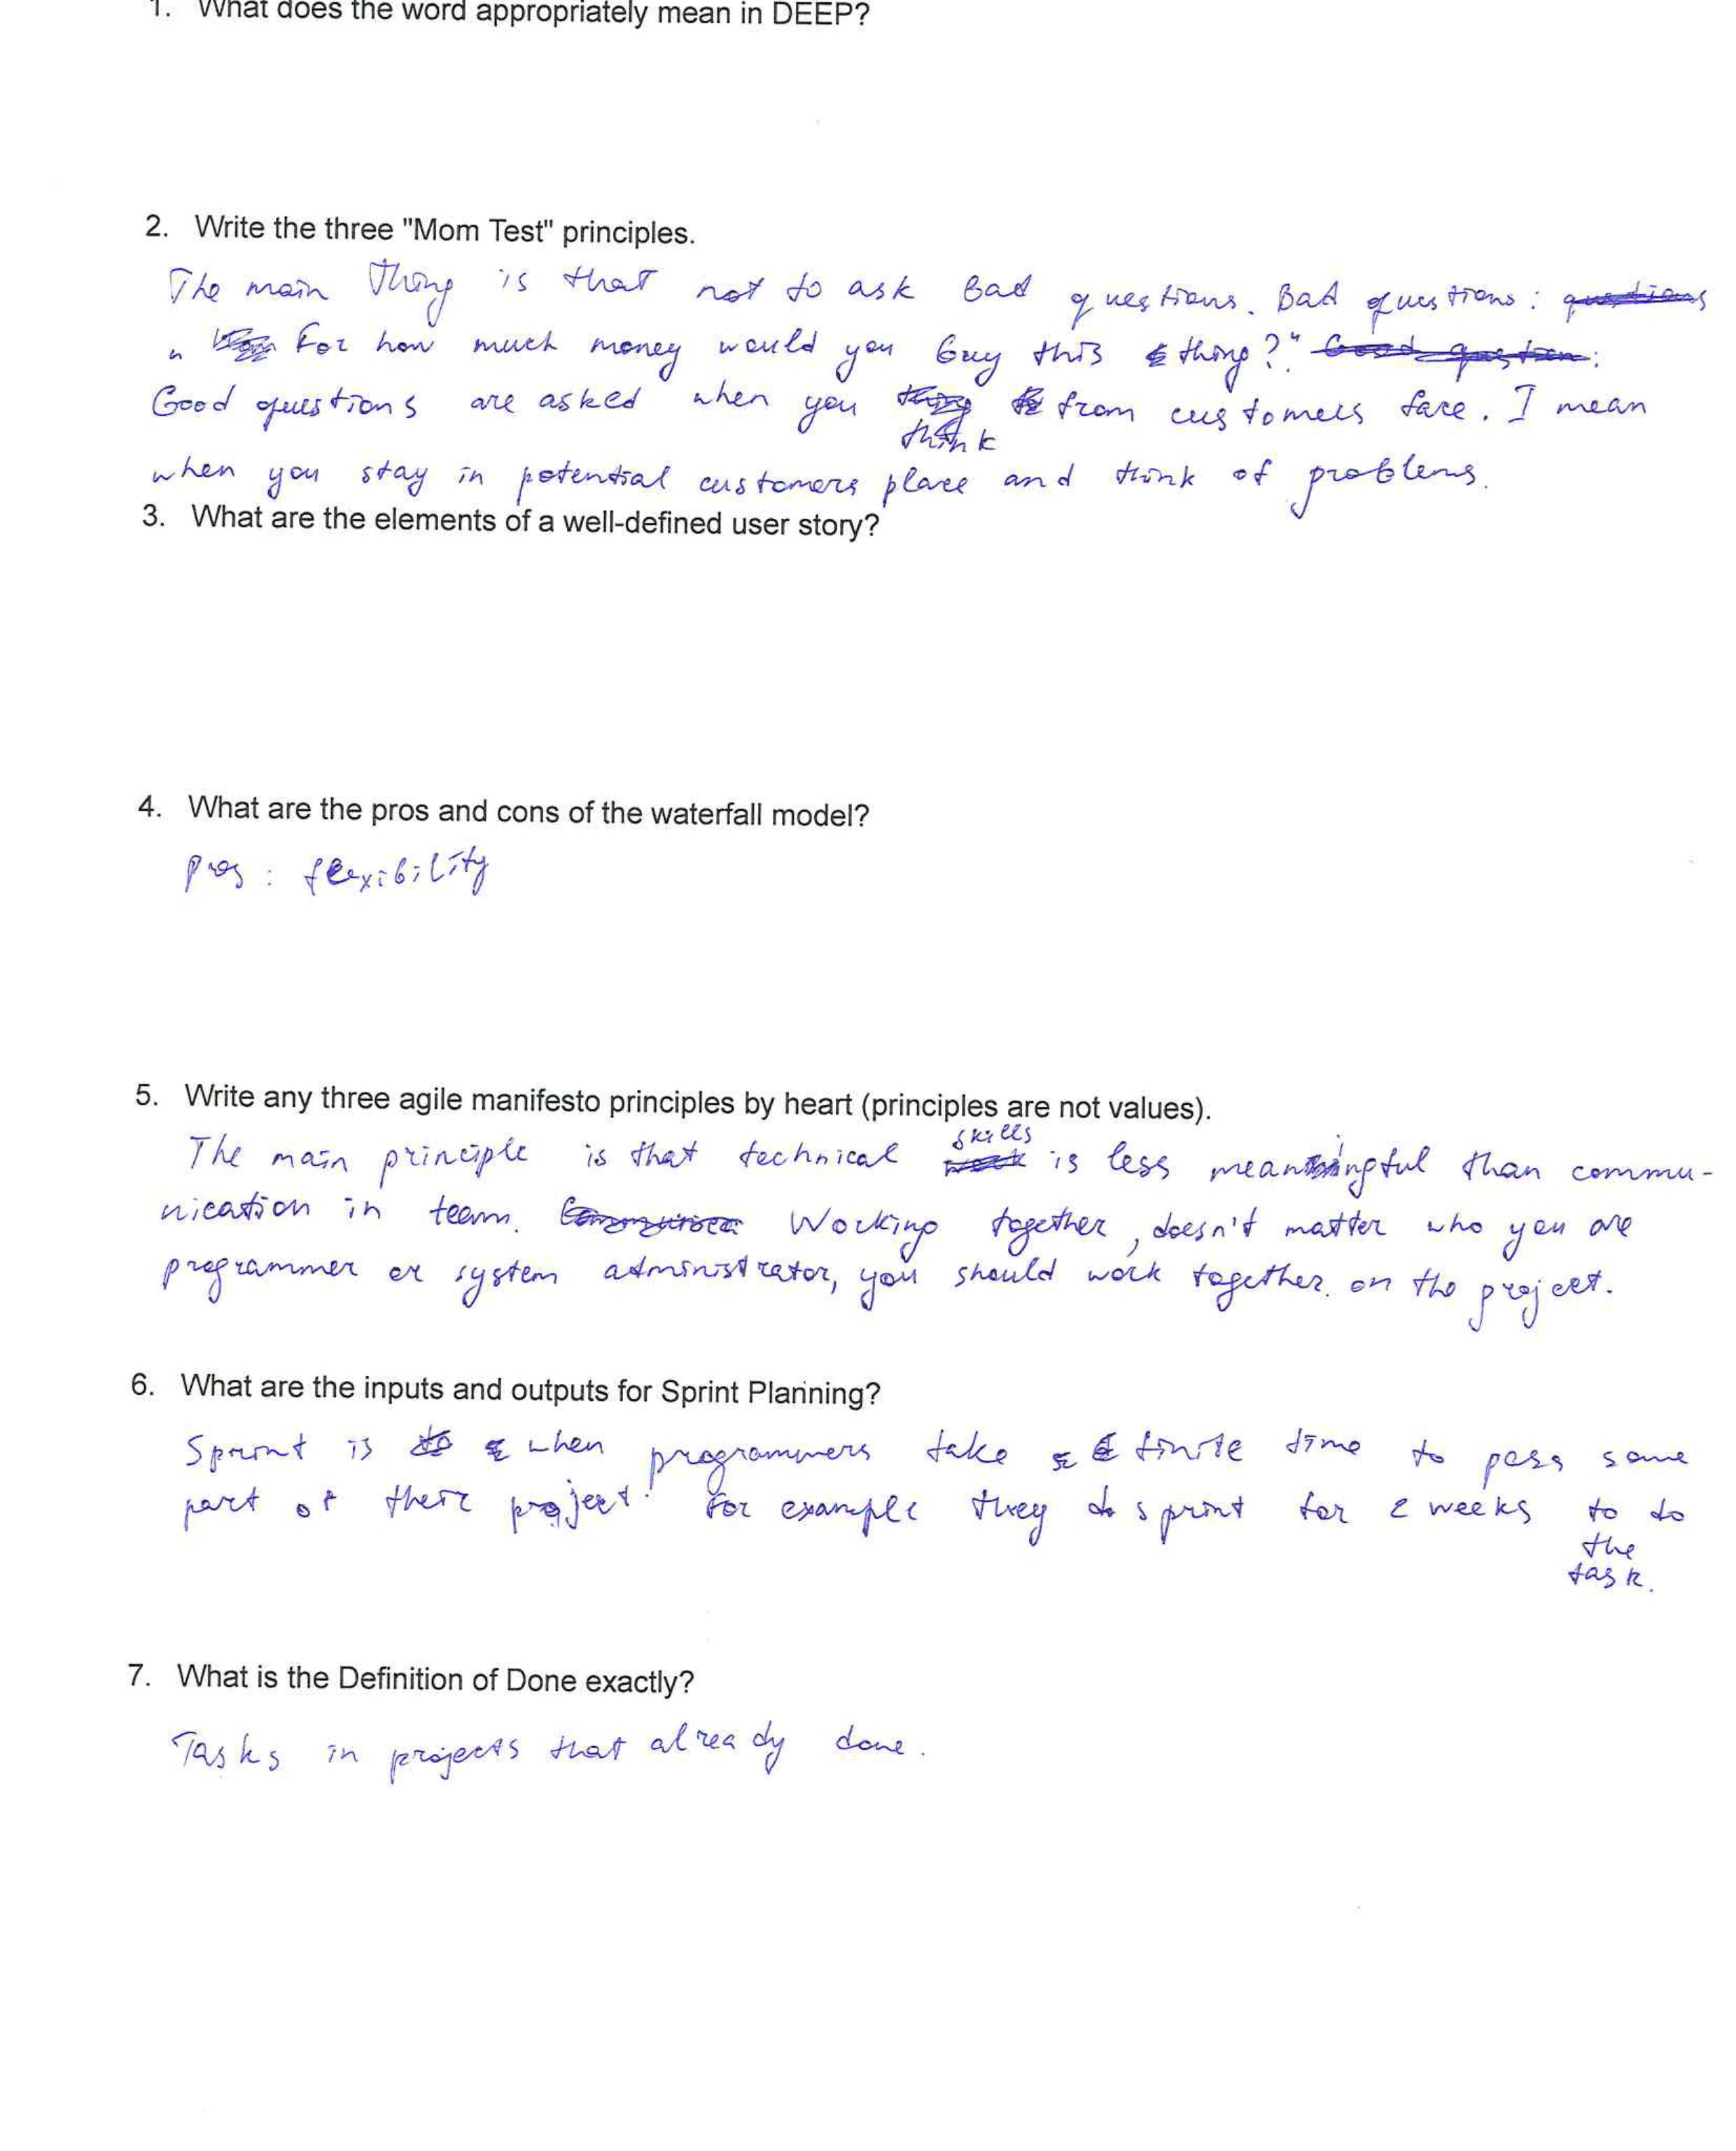 1. What does the word appropriately mean in DEEP?
2. Write the three "Mom Test" principles.
The main thing is that not to ask bad questions. Bad questions: questions
" For how much money would you buy this thing?" Good question:
Good questions are asked when you think from customers face. I mean
when you stay in potential customers place and think of problems.
3. What are the elements of a well-defined user story?
4. What are the pros and cons of the waterfall model?
pros: flexibility
5. Write any three agile manifesto principles by heart (principles are not values).
The main principle is that technical skills is less meaningful than commu-
nication in team. Working together, doesn't matter who you are
programmer or system administrator, you should work together. on the project.
6. What are the inputs and outputs for Sprint Planning?
Sprint is when programmers take finite time to pass some
part of their project. For example they do sprint for 2 weeks to do
the
task.
7. What is the Definition of Done exactly?
Tasks in projects that already done.